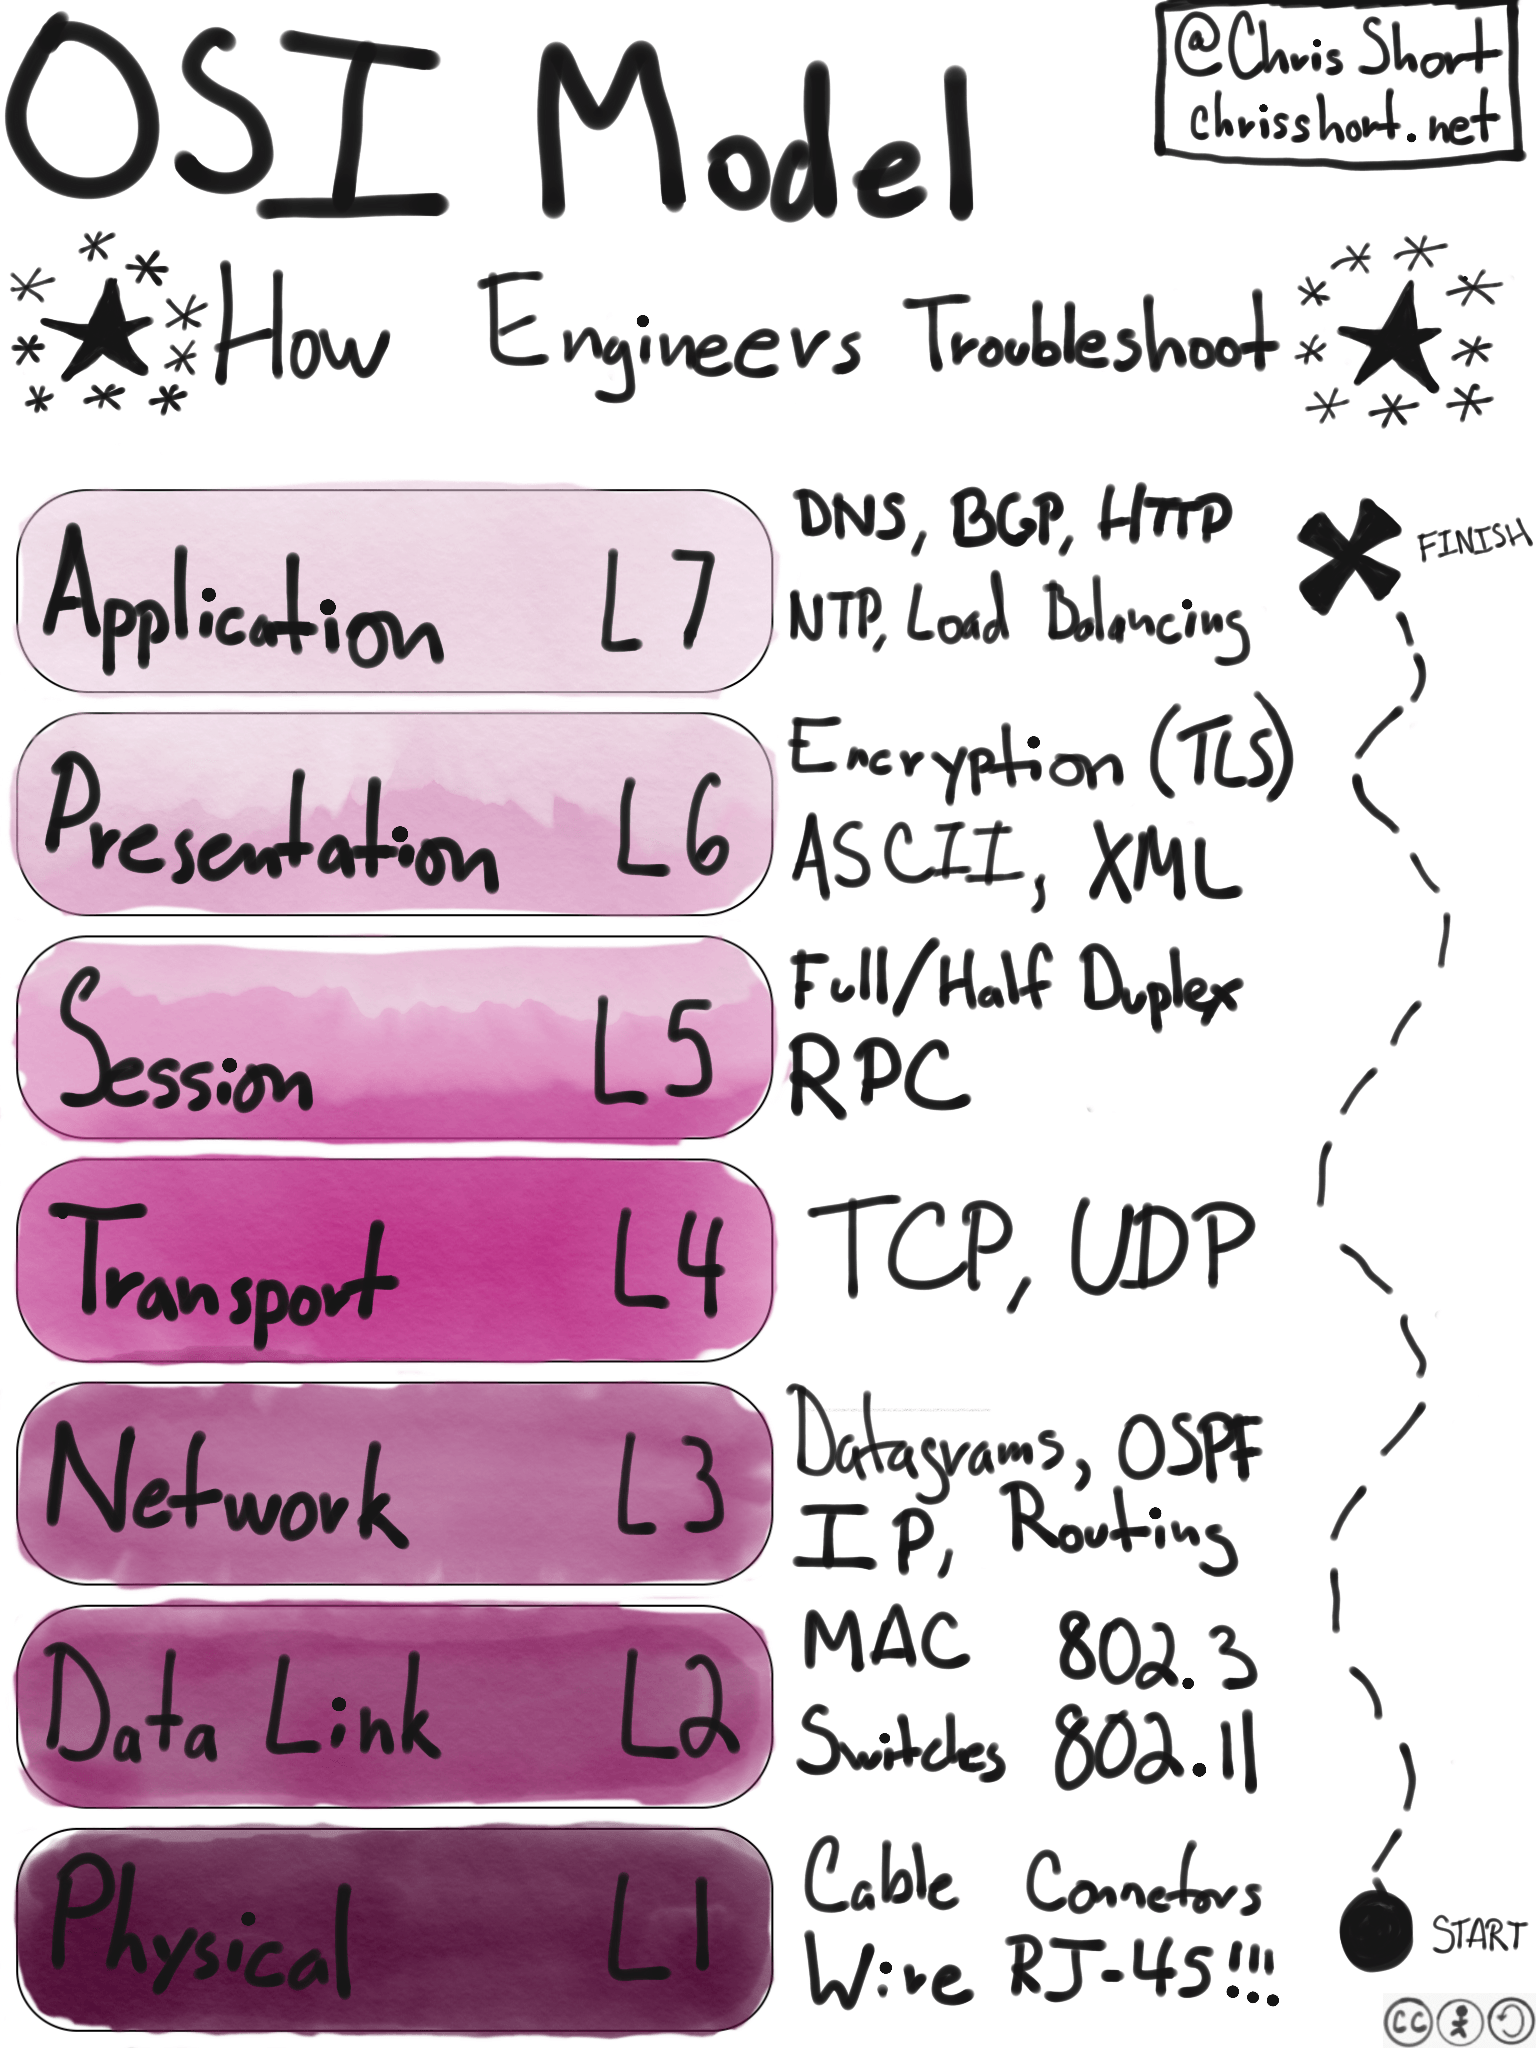 OSI Model
@Chris Short
chrisshort.net
How Engineers Troubleshoot
Application L7
DNS, BGP, HTTP
NTP, Load Balancing
FINISH
Presentation L6
Encryption (TLS)
ASCII, XML
Session L5
Full/Half Duplex
RPC
Transport L4
TCP, UDP
Network L3
Datagrams, OSPF
IP, Routing
Data Link L2
MAC 802.3
Switches 802.11
Physical L1
Cable Connetors
Wire RJ-45!!!
START
CC